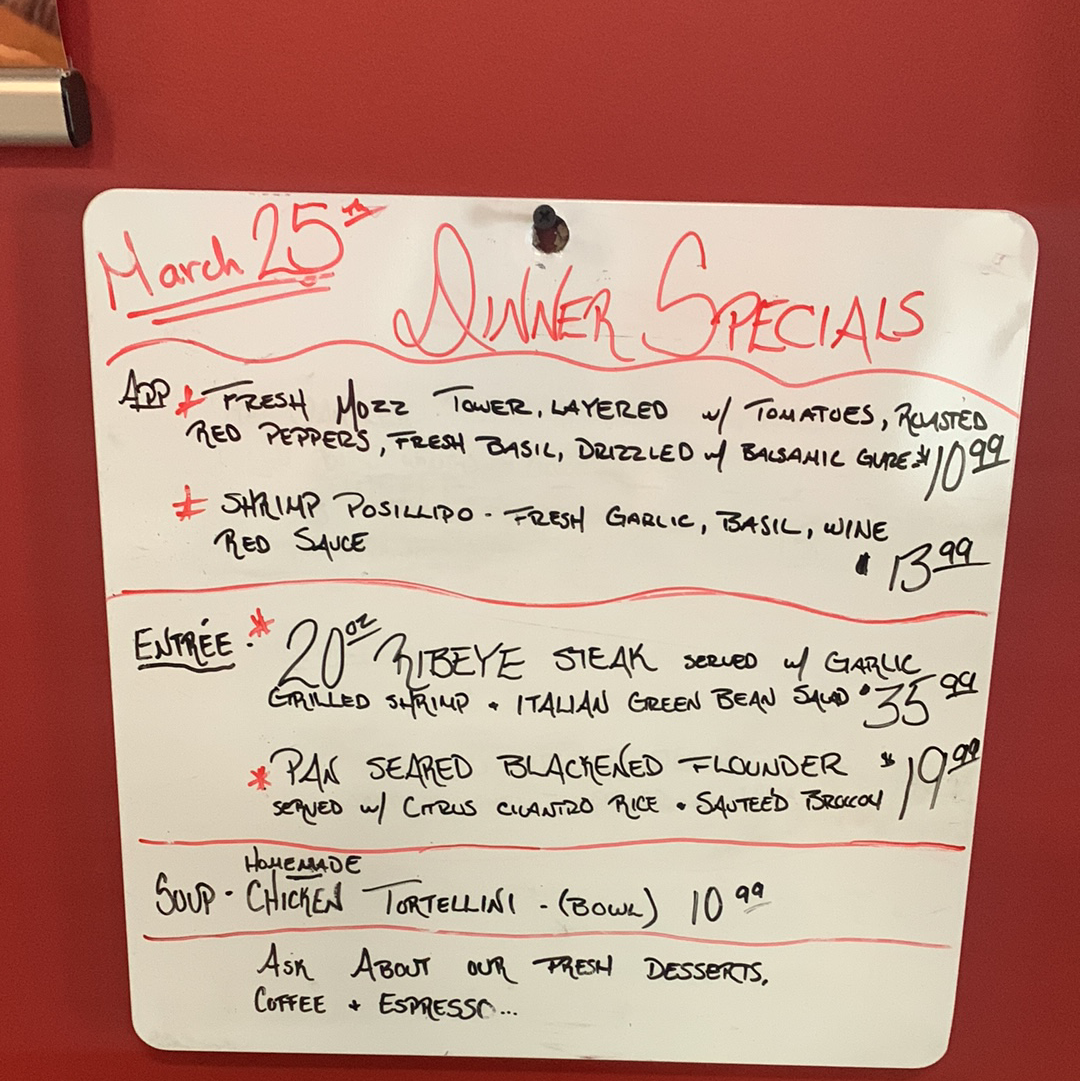 March 25th
DINNER SPECIALS
APP * FRESH MOZZ TOWER, LAYERED w/ TOMATOES, ROASTED
RED PEPPERS, FRESH BASIL, DRIZZLED w/ BALSAMIC GLAZE $10.99
* SHRIMP POSILLIPO - FRESH GARLIC, BASIL, WINE
RED SAUCE
$13.99
ENTRÉE * 20oz RIBEYE STEAK SERVED w/ GARLIC
GRILLED SHRIMP + ITALIAN GREEN BEAN SALAD $35.99
* PAN SEARED BLACKENED FLOUNDER $19.99
SERVED w/ CITRUS CILANTRO RICE + SAUTEÉD BROCCOLI
HOMEMADE
SOUP - CHICKEN TORTELLINI - (BOWL) 10.99
ASK ABOUT OUR FRESH DESSERTS,
COFFEE + ESPRESSO...